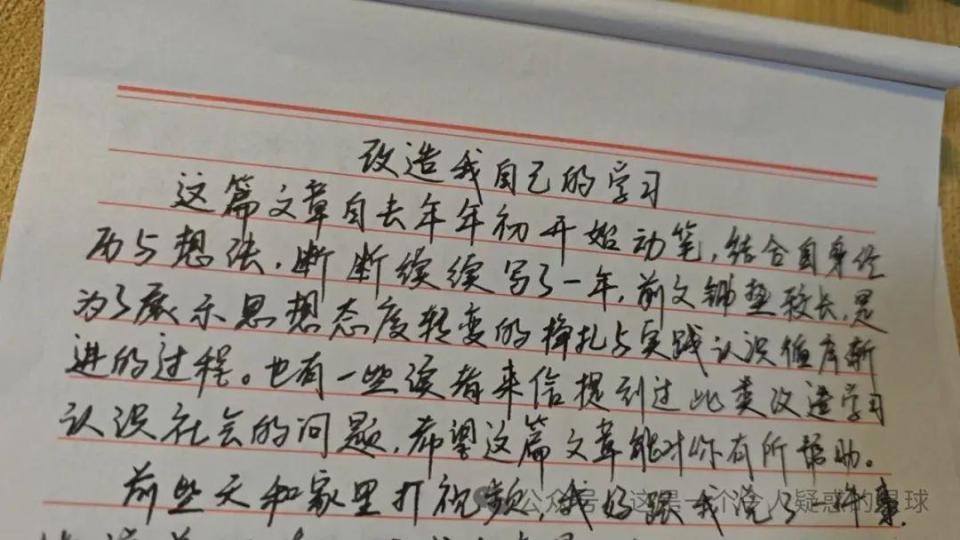 改造我自己的学习
这篇文章自去年年初开始动笔,结合自身经
历与想法,断断续续写了一年,前文铺垫较长,是
为了展示思想态度转变的挣扎与实践认识循序渐
进的过程。也有一些读者来信提到过此类改造学习
认识社会的问题,希望这篇文章能对你有所帮助。
前些天和家里打视频,我妈跟我说了一件事,
公众号 这是一个令人疑惑的星球